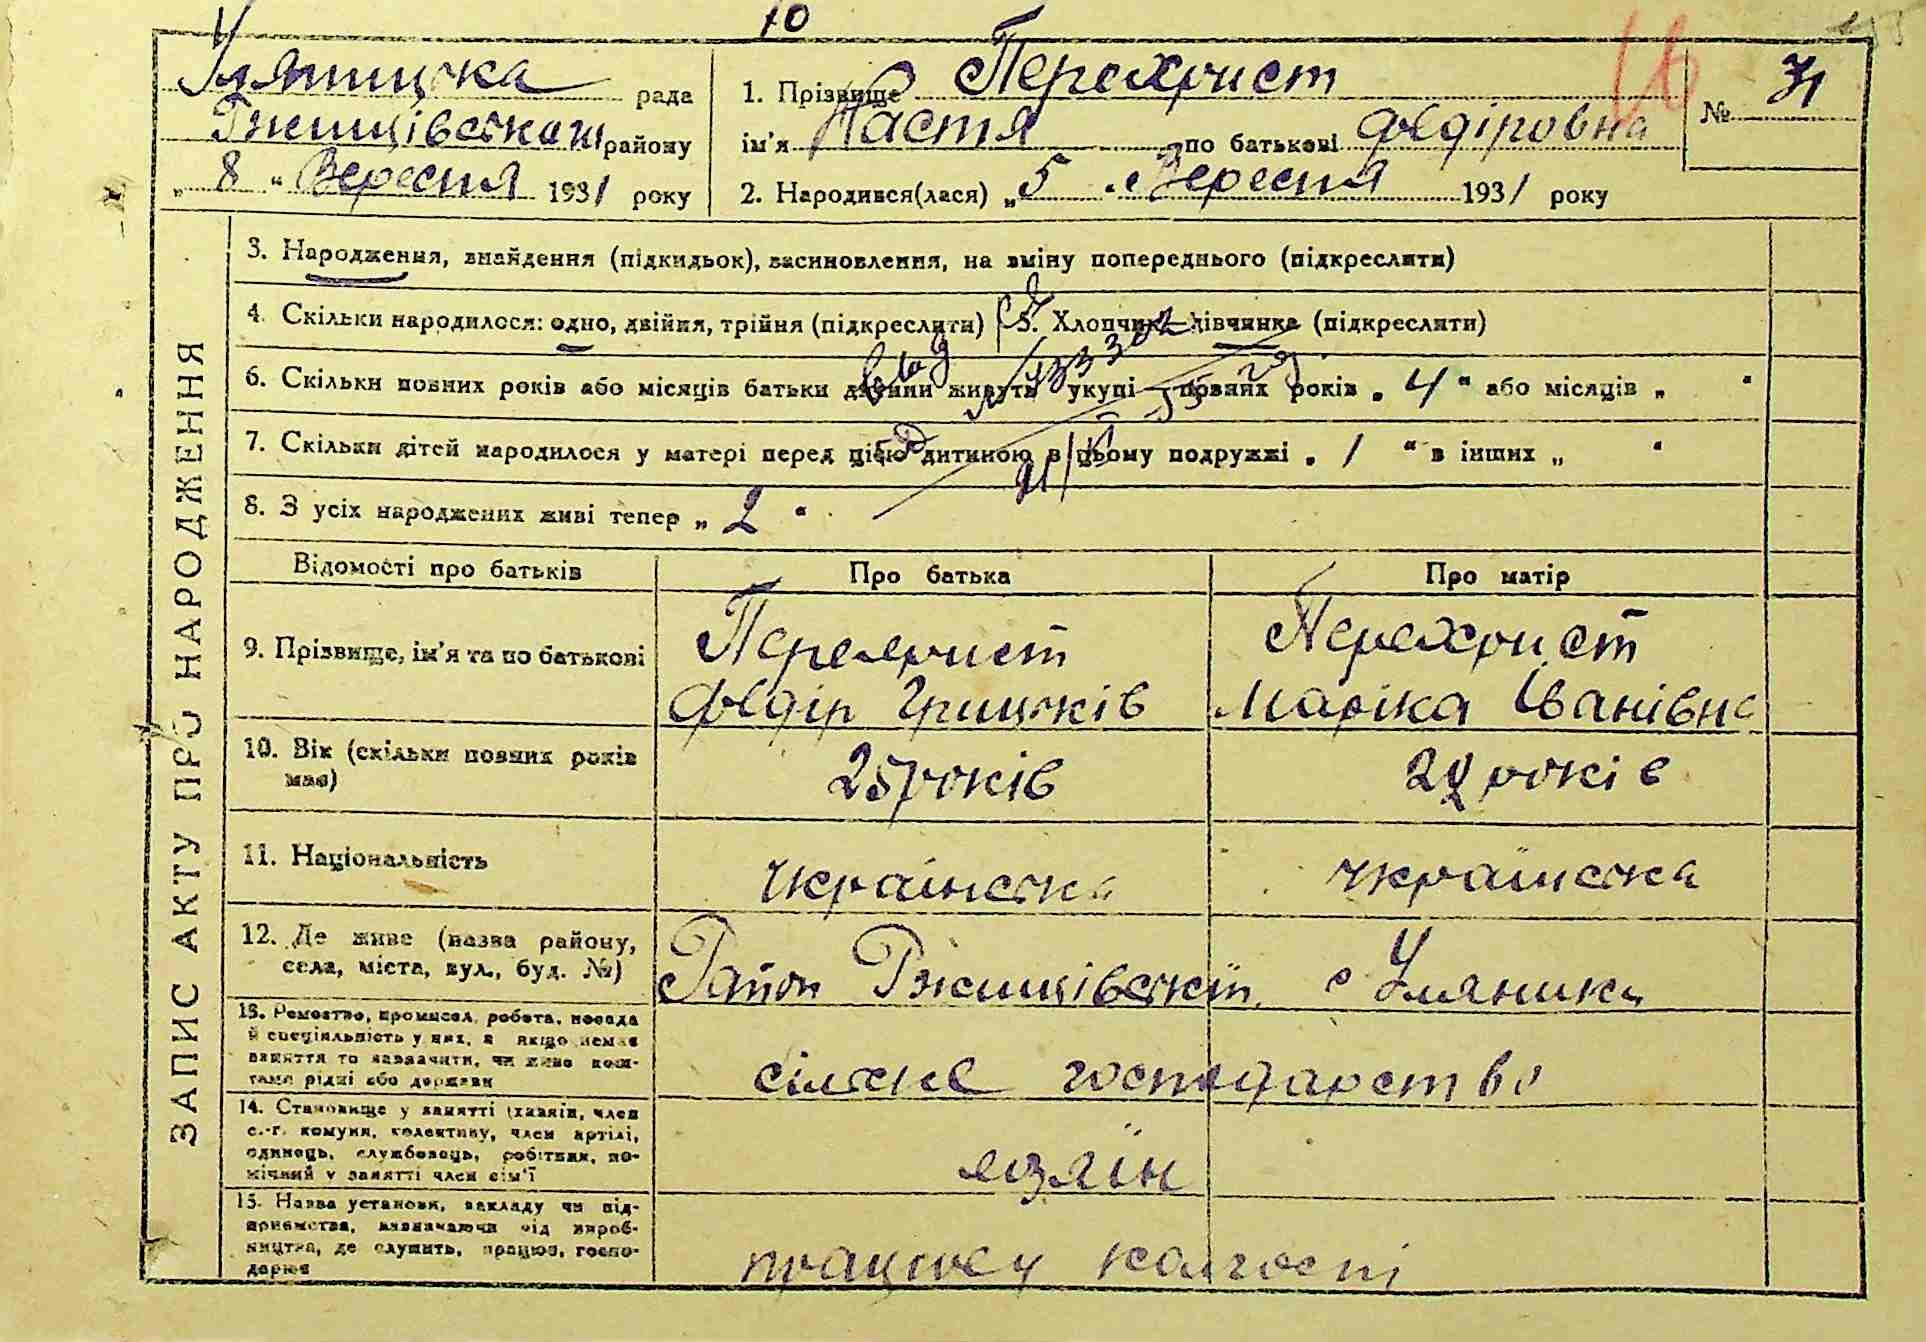 10
Уляницька рада
Ржищівського району
„ 8 “ Вересня 1931 року
1. Прізвище Перехрист
ім'я Настя по батькові Федіровна
2. Народився(лася) „ 5 “ Вересня 1931 року
№ 71
16
ЗАПИС АКТУ ПРО НАРОДЖЕННЯ
3. Народження, знайдення (підкидьок), всиновлення, на зміну попереднього (підкреслити)
4. Скільки народилося: одно, двійня, трійня (підкреслити)
5. Хлопчик, дівчинка (підкреслити)
6. Скільки повних років або місяців батьки дитини живуть укупі повних років „ 4 “ або місяців „ “
7. Скільки дітей народилося у матері перед цією дитиною в цьому подружжі „ 1 “ в інших „ “
8. З усіх народжених живі тепер „ 2 “
Відомості про батьків Про батька Про матір
9. Прізвище, ім'я та по батькові
Перехрист
Федір Грицьків
Перехрист
Маріка Іванівна
10. Вік (скільки повних років
має)
25 років
років
11. Національність
українська
українська
12. Де живе (назва району,
села, міста, вул., буд. №)
Район Ржищівський с Уляники
13. Ремество, промисел, робота, посада
й спеціяльність у них, а якщо немає
заняття то зазначити, чи живе кош-
тами рідні або держави
сільске господарство
14. Становище у занятті (хазяїн, член
с.-г. комуни, колективу, член артілі,
одинець, службовець, робітник, по-
мічний у занятті член сім'ї
15. Назва установи, закладу чи під-
приємства, визначаючи від вироб-
ництва, де служить, працює, госпо-
дарює
працює у колгоспі